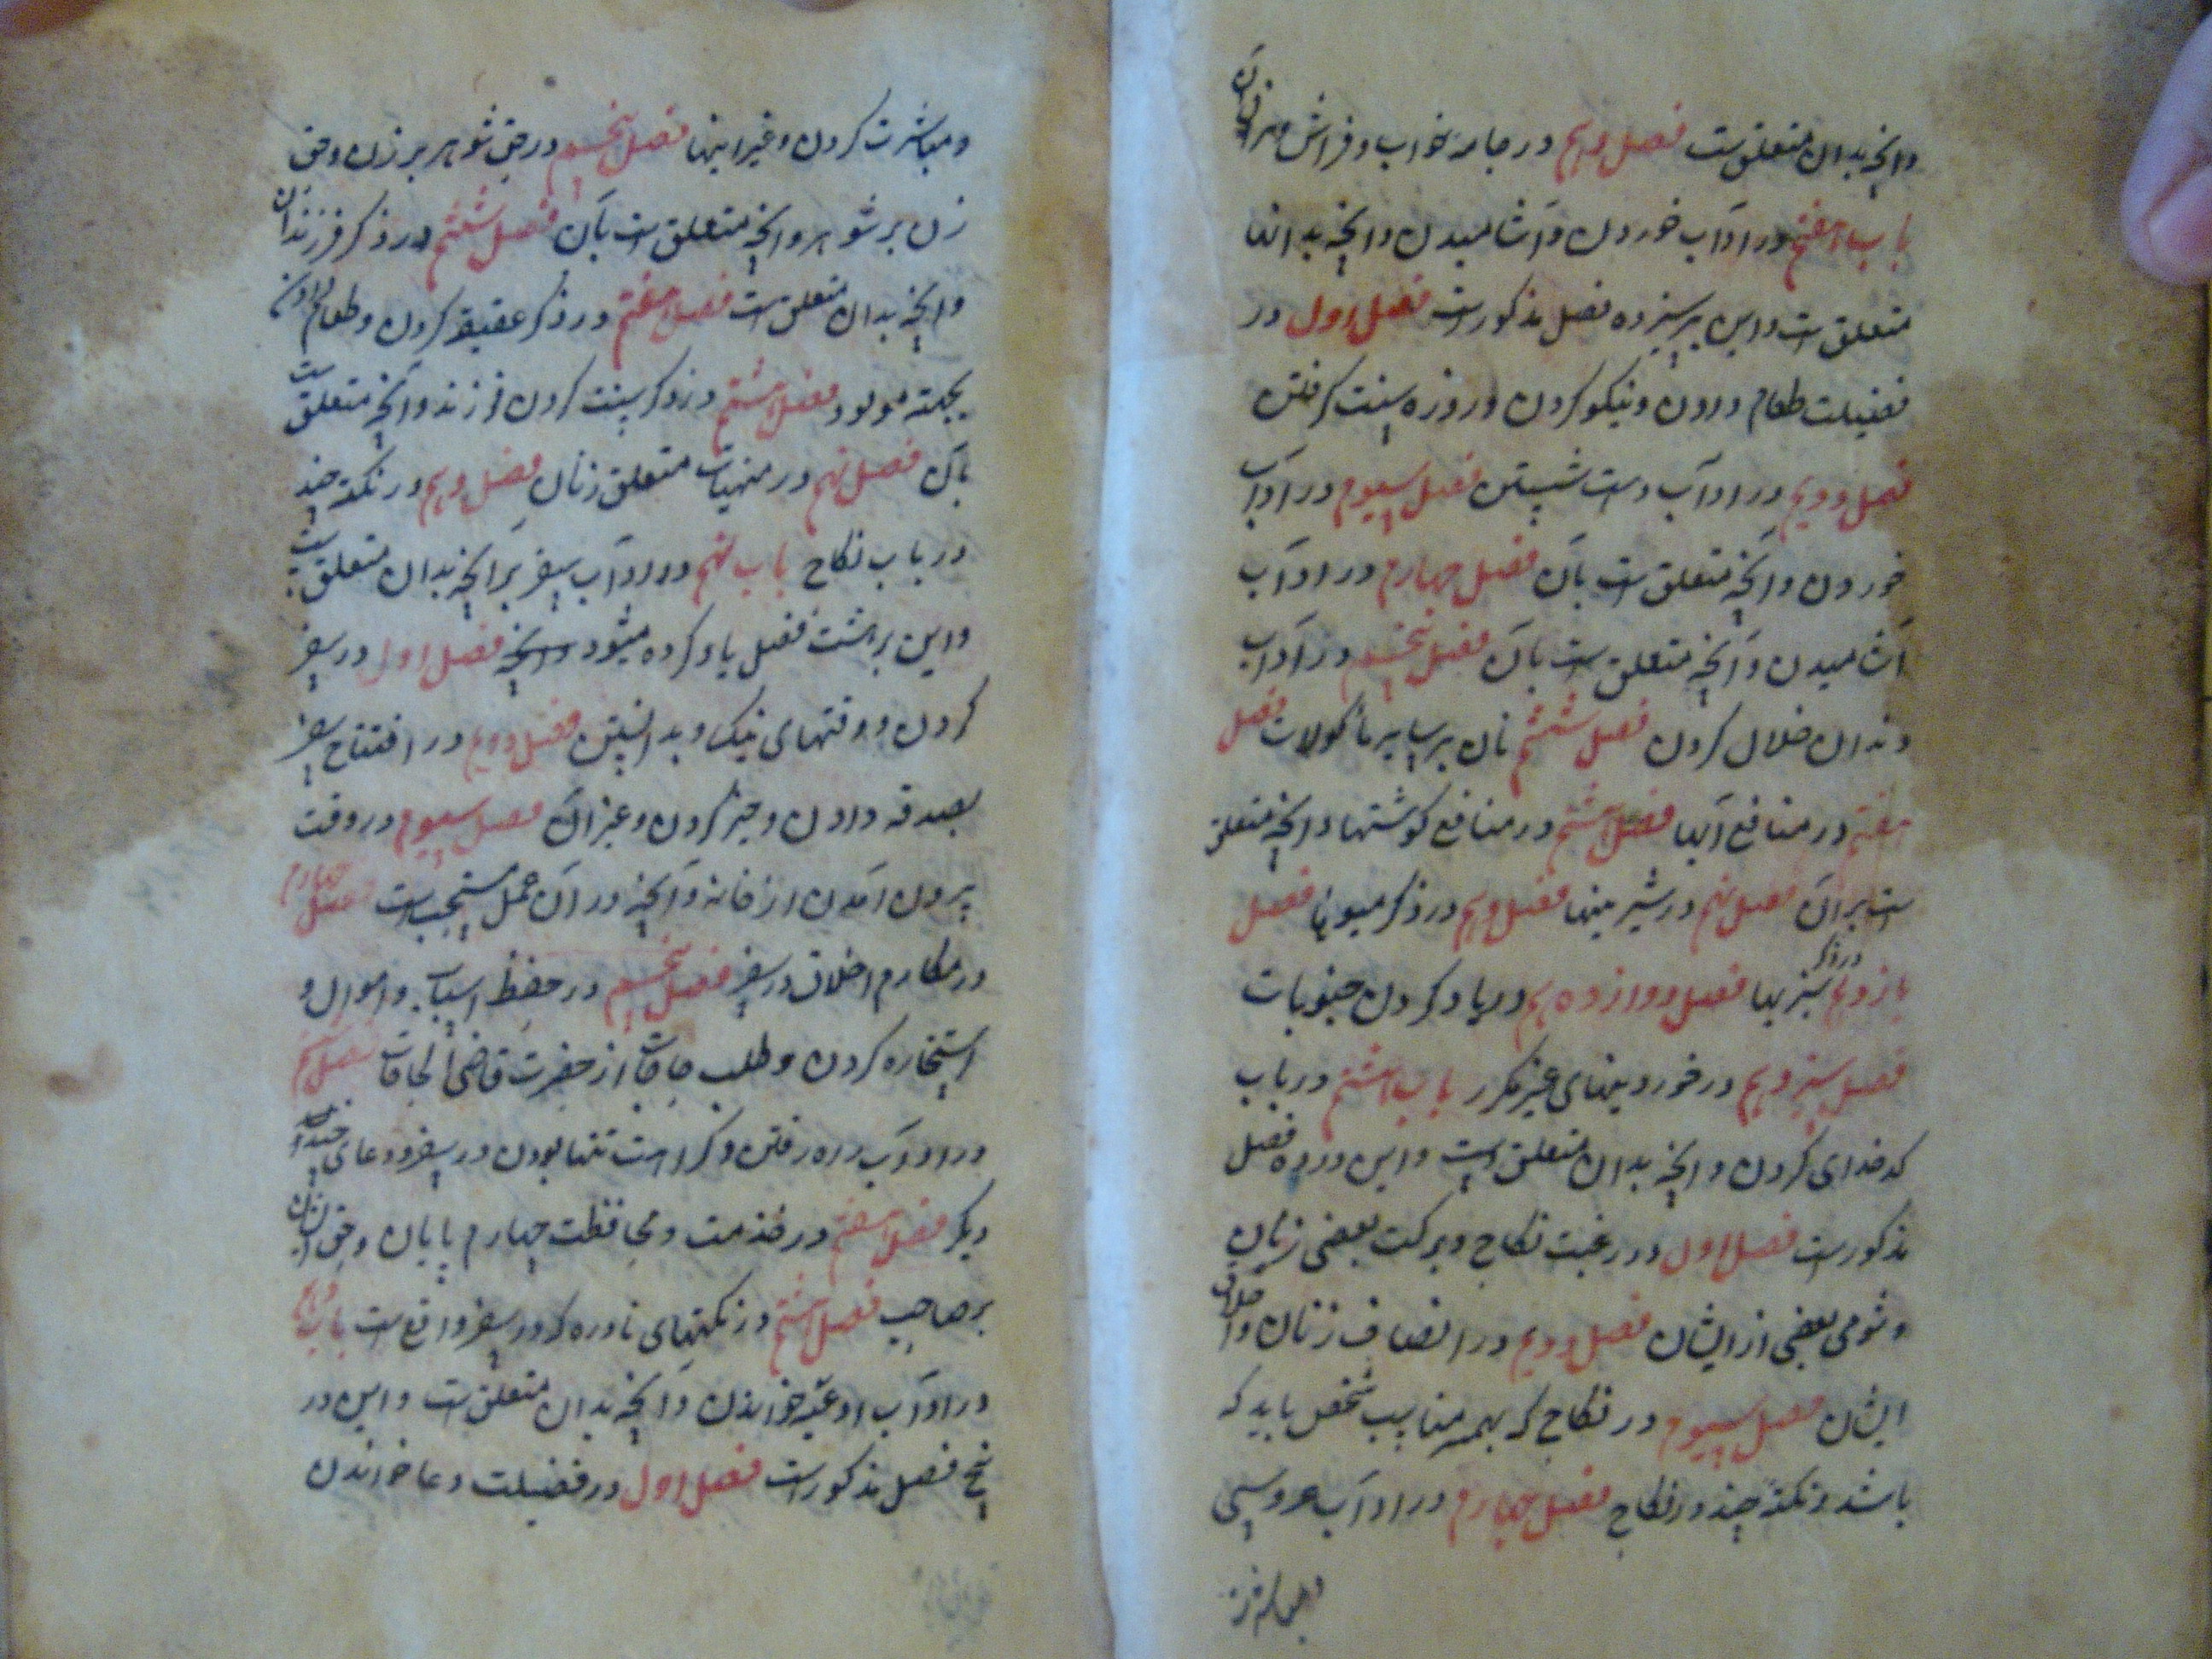 وانچه بدان متعلق است فصل دهم در جامهٔ خواب و فراش و غیر آن
باب هفتم در ادآب خوردن و آشامیدن وانچه بدانها
متعلق است و این بر سیزده فصل مذکور است فصل اول در
فضیلت طعام دادن و نیکو کردن و روزه سنت گرفتن
فصل دویم در ادآب دست شستن فصل سیوم در ادآب
خوردن وانچه متعلق است بآن فصل چهارم در ادآب
آشامیدن وآنچه متعلق است بآن فصل پنجم در آدآب
دندان خلال کردن فصل ششم نان بر سایر ماکولات فصل
هفتم در منافع آبها فصل هشتم در منافع گوشتها وانچه متعلق
است برآن فصل نهم در شیرینها فصل دهم در ذکر میوها فصل
یازدهم در ذکر سبزیها فصل دوازدهم در یاد کردن حبوبات
فصل سیزدهم در خوردینهای غیر مکرر باب هشتم در باب
کدخدای کردن وانچه بدان متعلق است و این در ده فصل
مذکور است فصل اول در رغبت نکاح و برکت بعضی زنان
و شومی بعضی از ایشان فصل دویم در انصاف زنان و اخلاق
ایشان فصل سیوم در نکاح که بهمه مناسب شخص باید که
باشد و نکته چند در نکاح فصل چهارم در ادآب عروسی
و مباشرت کردن و غیر اینها فصل پنجم در حق شوهر بر زن و حق
زن بر شوهر وانچه متعلق است بآن فصل ششم در ذکر فرزندان
وانچه بدان متعلق است فصل هفتم در ذکر عقیقه کردن و طعام دادن
بجهته مولود فصل هشتم در ذکر سنت کردن فرزند وآنچه متعلق است
بآن فصل نهم در منهیات متعلق زنان فصل دهم در نکته چند
در باب نکاح باب نهم در ادآب سفر برانچه بدان متعلق است
و این بر هشت فصل یاد کرده میشود وانچه فصل اول در سفر
کردن و وقتهای نیک و بد انستن فصل دویم در افتتاح سفر
بصدقه دادن و خیر کردن و غیر آن فصل سیوم در وقت
بیرون آمدن از خانه وآنچه در آن عمل مستحب است فصل چهارم
در مکارم اخلاق در سفر فصل پنجم در حفظ اسباب و اموال و
استخاره کردن و طلب حاجات از حضرت قاضی الحاجات فصل ششم
در ادآب راه رفتن و کراهت تنها بودن در سفر و دعای چند
دیگر فصل هفتم در خدمت و محافظت چهارم پایان و حق ایشان
بر صاحب فصل هشتم در نکتهای نادره که در سفر واقع است باب دهم
در ادآب ادعیه خواندن وآنچه بدان متعلق است و این در
پنج فصل مذکور است فصل اول در فضیلت دعا خواندن